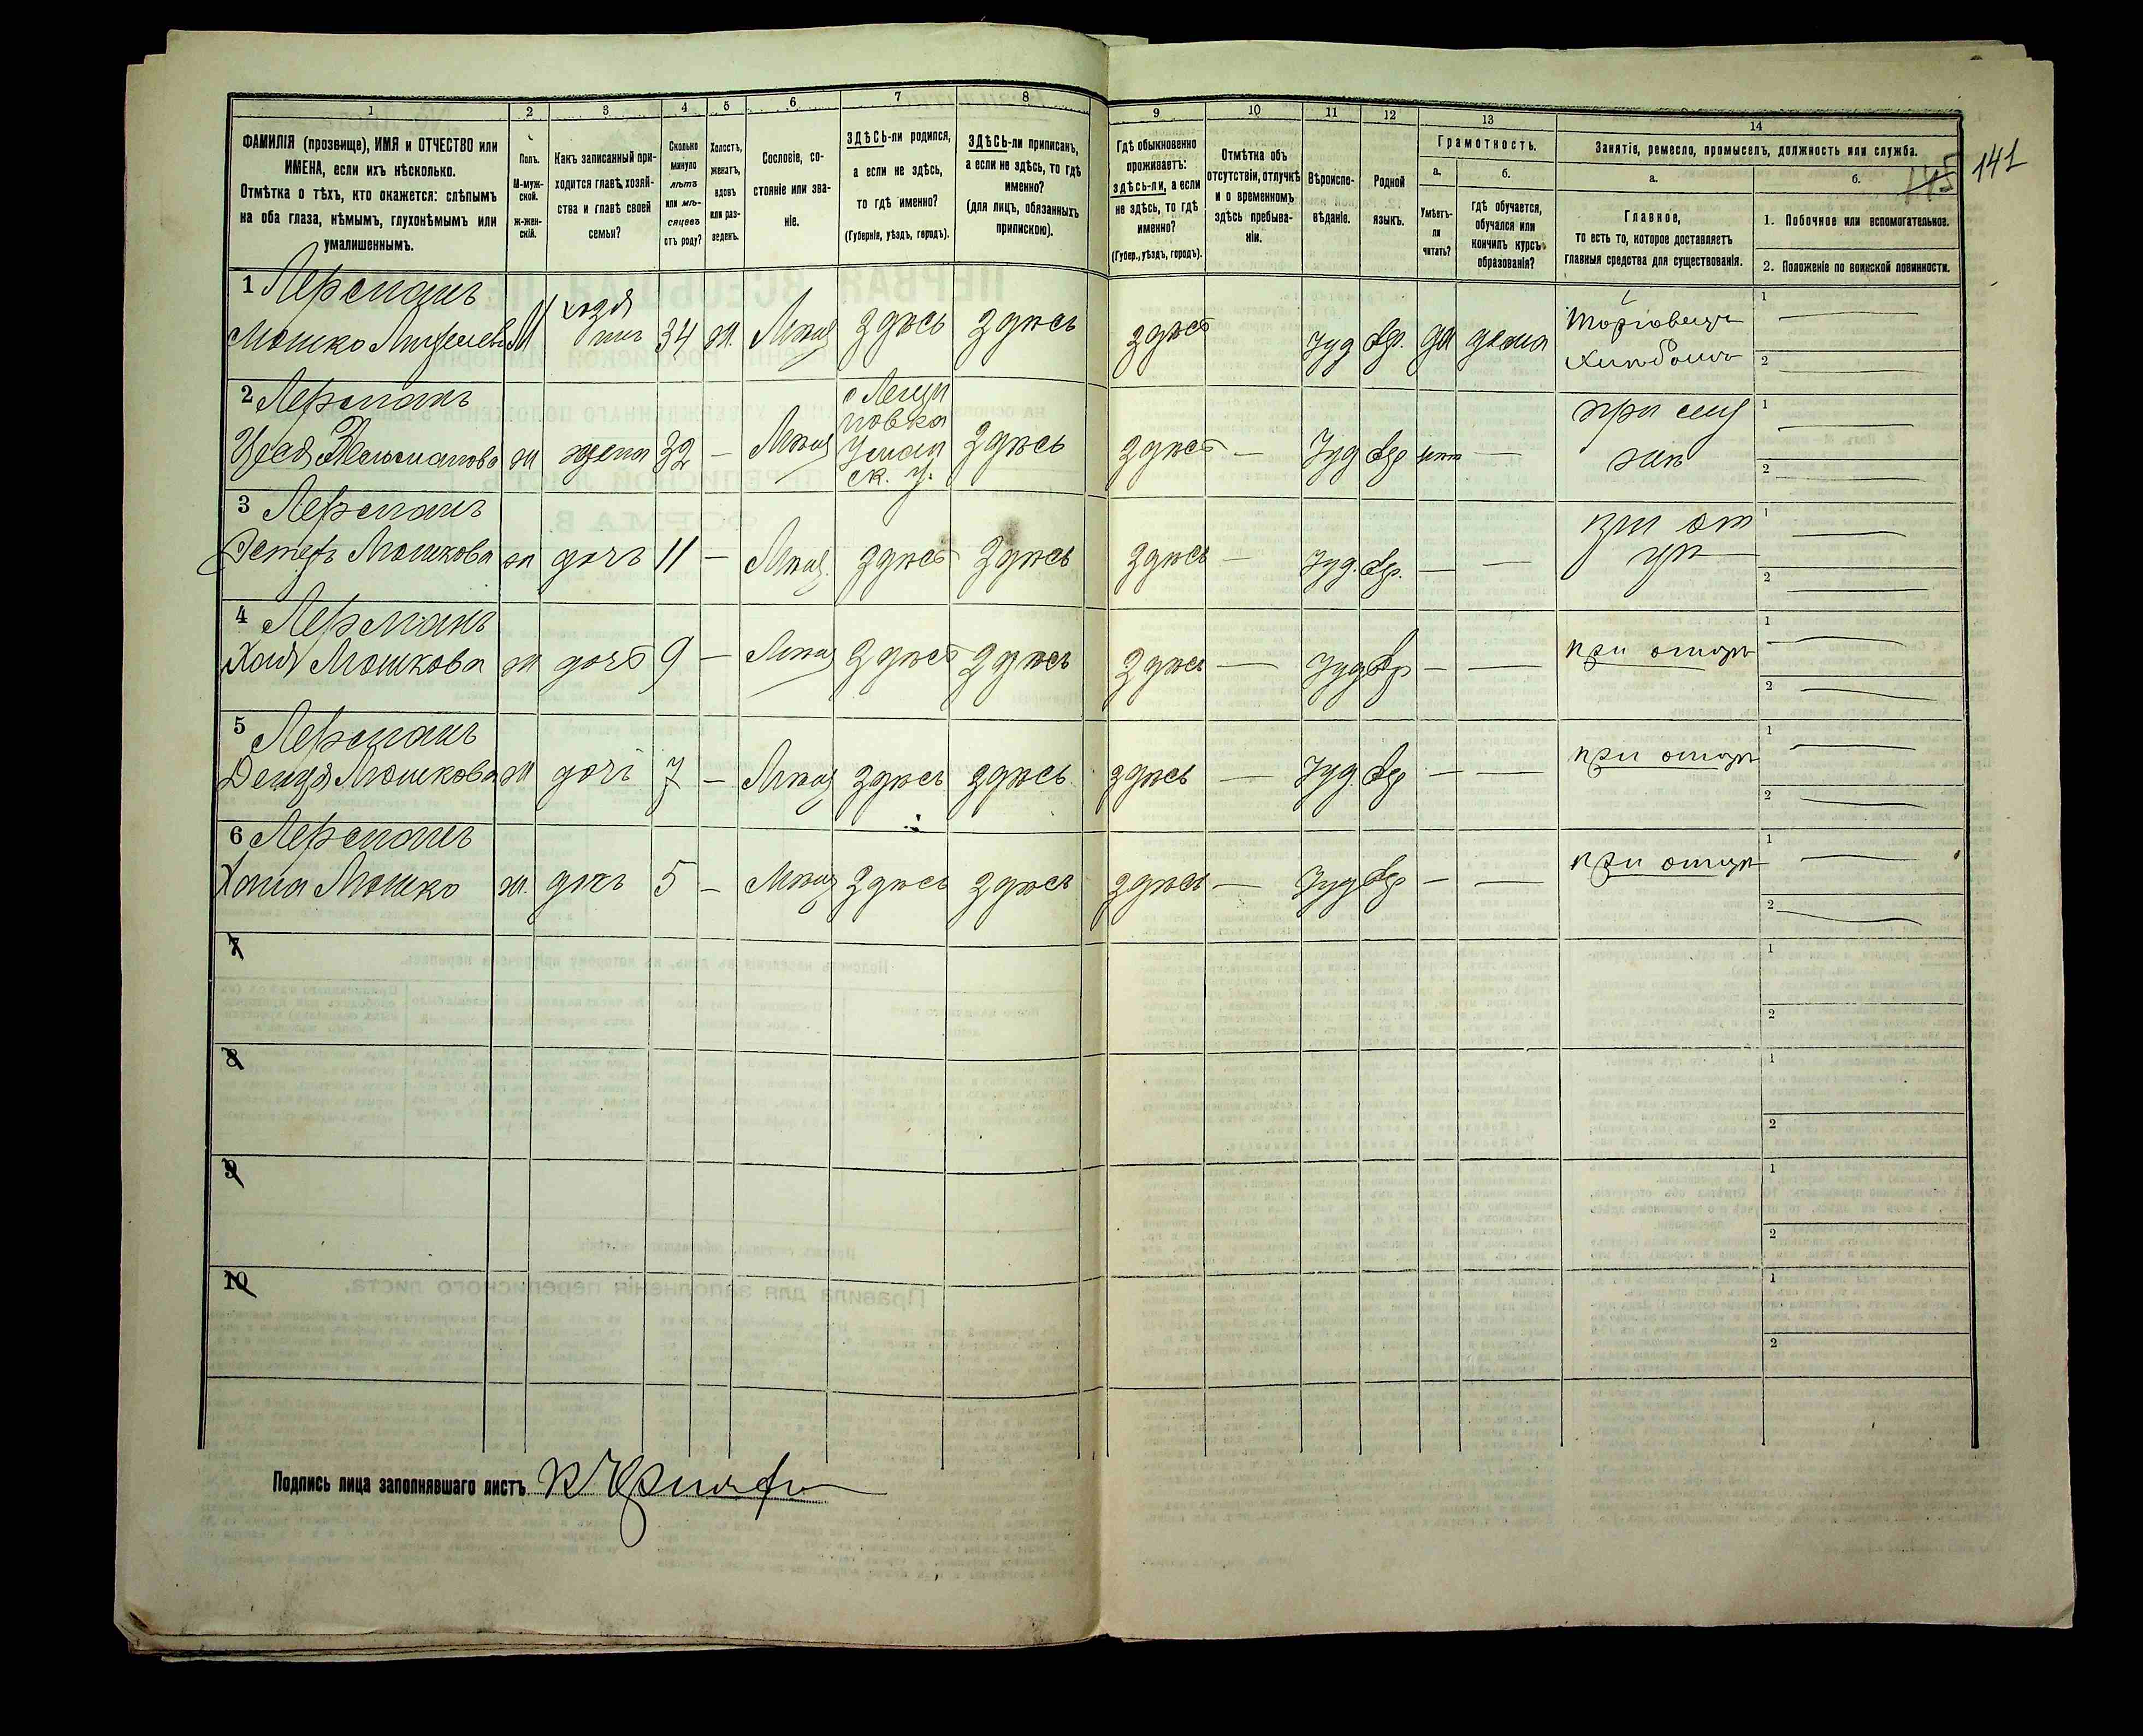 1 2 3 4 5 6 7 8 9 10 11 12 13 14
ФАМИЛІЯ (прозвище), ИМЯ и ОТЧЕСТВО или
ИМЕНА, если ихъ нѣсколько.
Отмѣтка о тѣхъ, кто окажется: слѣпымъ
на оба глаза, нѣмымъ, глухонѣмымъ или
умалишеннымъ.
Полъ.
М-муж-
ской.
ж-жен-
скій.
Какъ записанный при-
ходится главѣ хозяй-
ства и главѣ своей
семьи?
Сколько
минуло
лѣтъ
или мѣ-
сяцевъ
отъ роду?
Холостъ,
женатъ,
вдовъ
или раз-
веденъ.
Сословіе, со-
стояніе или зва-
ніе.
ЗДѢСЬ-ли родился,
а если не здѣсь,
то гдѣ именно?
(Губернія, уѣздъ, городъ).
ЗДѢСЬ-ли приписанъ,
а если не здѣсь, то гдѣ
именно?
(для лицъ, обязанныхъ
припискою).
Гдѣ обыкновенно
проживаетъ:
здѣсь-ли, а если
не здѣсь, то гдѣ
именно?
(Губер., уѣздъ, городъ).
Отмѣтка объ
отсутствіи, отлучкѣ
и о временномъ
здѣсь пребыва-
ніи.
Вѣроиспо-
вѣданіе.
Родной
языкъ.
Грамотность.
а.
Умѣетъ-
ли
читать?
б.
Гдѣ обучается,
обучался или
кончилъ курсъ
образованія?
Занятіе, ремесло, промыселъ, должность или служба.
а.
Главное,
то есть то, которое доставляетъ
главныя средства для существованія.
б.
1. Побочное или вспомогательное.
2. Положеніе по воинской повинности.
145 141
1 Лерманъ
Мошко М хозя 34 ж. Мѣщ здѣсь здѣсь здѣсь Іуд Евр. да дома Торговецъ 1
инъ хлѣбомъ 2
2 Лерманъ
ж жена 32 — Мѣщ Уман ск. у. здѣсь здѣсь — Іуд Евр нѣт — при 1
2
3 Лерманъ
Эстеръ Мошкова ж дочь 11 — Мѣщ. здѣсь здѣсь здѣсь — Іуд. Евр. — — при от 1
цѣ 2
4 Лерманъ
Хая Мошкова ж дочь 9 — Мѣщ здѣсь здѣсь здѣсь — Іуд Евр — — при отцѣ 1
2
5 Лерманъ
Мошкова ж дочь 7 — Мѣщ здѣсь здѣсь здѣсь — Іуд. Евр — — при отцѣ 1
2
6 Лерманъ
Хана Мошко ж. дочь 5 — Мѣщ здѣсь здѣсь здѣсь — Іуд Евр — — при отцѣ 1
2
7 1
2
8 1
2
9 1
2
10 1
2
Подпись лица заполнявшаго листъ